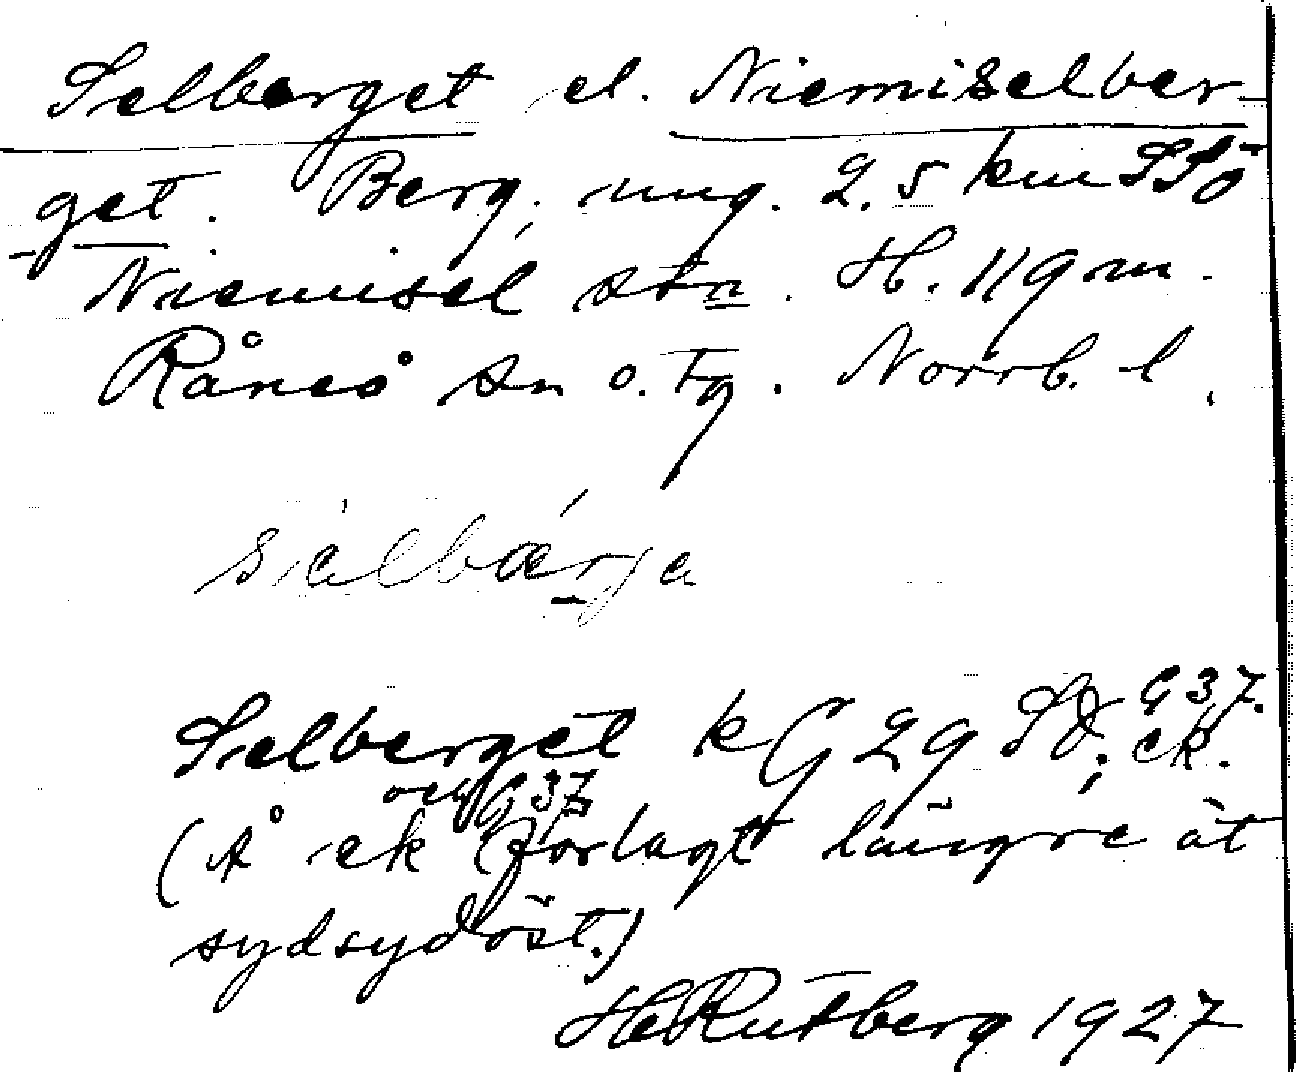 Selberget el. Niemiselber-
get. Berg, ung. 2,5 km SSö
Niemisel stn. H. 119 m.
Råneå sn o. tg. Norrb. l.
sèlbǽrje
Selberget kG 29 SO; ek. G 37.
(Å ek och G 37 förlagt längre åt
sydsydöst.)
HeRutberg 1927